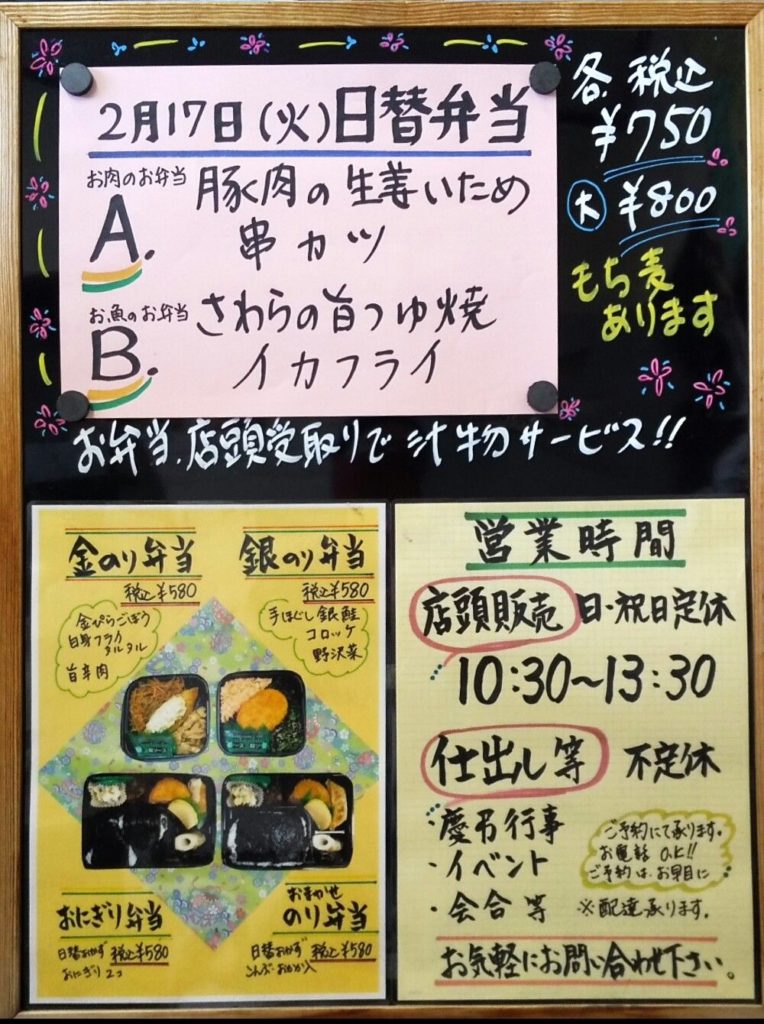 2月17日(火)日替弁当
お肉のお弁当
A.
豚肉の生姜いため
串カツ
お魚のお弁当
B.
さわらの旨つゆ焼
イカフライ
各税込
¥750
大 ¥800
もち麦
あります
お弁当、店頭受取りで汁物サービス!!
金のり弁当
税込¥580
金ぴらごぼう
白身フライ
タルタル
旨辛肉
銀のり弁当
税込¥580
手ほぐし銀鮭
コロッケ
野沢菜
おにぎり弁当
日替おかず 税込¥580
おにぎり2コ
おまかせ
のり弁当
日替おかず 税込¥580
こんぶ・おかか入
営業時間
店頭販売 日・祝日定休
10:30〜13:30
仕出し等 不定休
・慶弔行事
・イベント
・会合等
ご予約にて承ります。
お電話OK!!
ご予約は、お早目に
※配達承ります。
お気軽にお問い合わせ下さい。